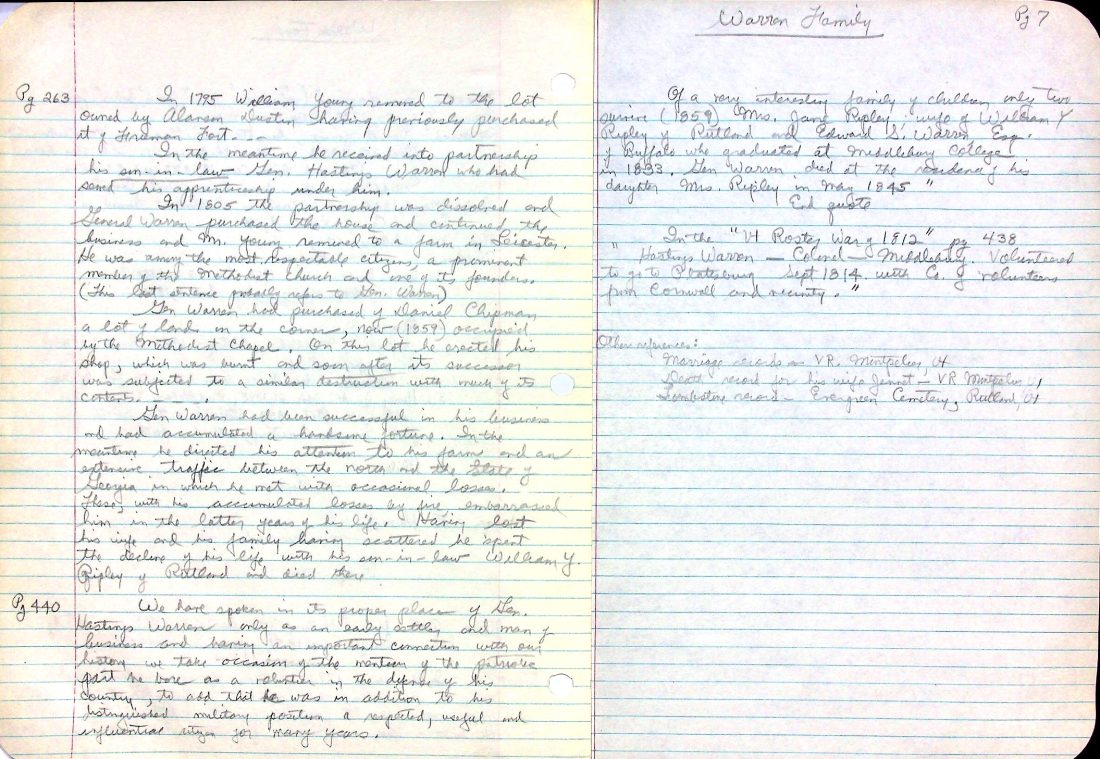 Pg 263 In 1795 William Young removed to the lot
owned by Alanson Dustin having previously purchased
it of Freeman Fort - - -
In the meantime he received into partnership
his son-in-law Gen. Hastings Warren who had
served his apprenticeship under him.
In 1805 the partnership was dissolved and
General Warren purchased the house and continued the
business and Mr. Young removed to a farm in Leicester.
He was among the most respectable citizens, a prominent
member of the Methodist Church and one of its founders.
(This last sentence probably refers to Gen. Warren)
Gen Warren had purchased of Daniel Chipman
a lot of land in the corner, now (1859) occupied
by the Methodist Chapel. On this lot he erected his
shop, which was burnt and soon after its successor
was subjected to a similar destruction with much of its
contents. - - - .
Gen Warren had been successful in his business
and had accumulated a handsome fortune. In the
meantime he directed his attention to his farm and an
extensive traffic between the north and the State of
Georgia in which he met with occasional losses.
These, with his accumulated losses by fire embarrassed
him in the latter years of his life. Having lost
his wife and his family having scattered he spent
the decline of his life with his son-in-law William Y.
Ripley of Rutland and died there
Pg 440 We have spoken in its proper place of Gen.
Hastings Warren only as an early settler and man of
business and having an important connection with our
history we take occasion of the mention of the patriotic
part he bore as a volunteer in the defense of his
country, to add that he was in addition to his
distinguished military position a respected, useful and
influential citizen for many years.
Warren Family Pg 7
Of a very interesting family of children only two
survive (1859) Mrs. Jane Ripley wife of William Y
Ripley of Rutland and Edward S. Warren Esq.
of Buffalo who graduated at Middlebury College
in 1833. Gen Warren died at the residence of his
daughter Mrs. Ripley in May 1845 "
End quote
In the "Vt Roster War of 1812" pg 438
" Hastings Warren — Colonel — Middlebury. Volunteered
to go to Plattsburg Sept 1814 with Co. of volunteers
from Cornwall and vicinity. "
Other references:
Marriage records in VR, Montpelier, Vt
Death record for his wife Jennet — VR Montpelier, Vt
Tombstone record - Evergreen Cemetery, Rutland, Vt